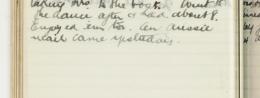 taking Mrs to the boat. Went to
the dance after & had about 8.
Enjoyed em too. An Aussie
mail came yesterday.